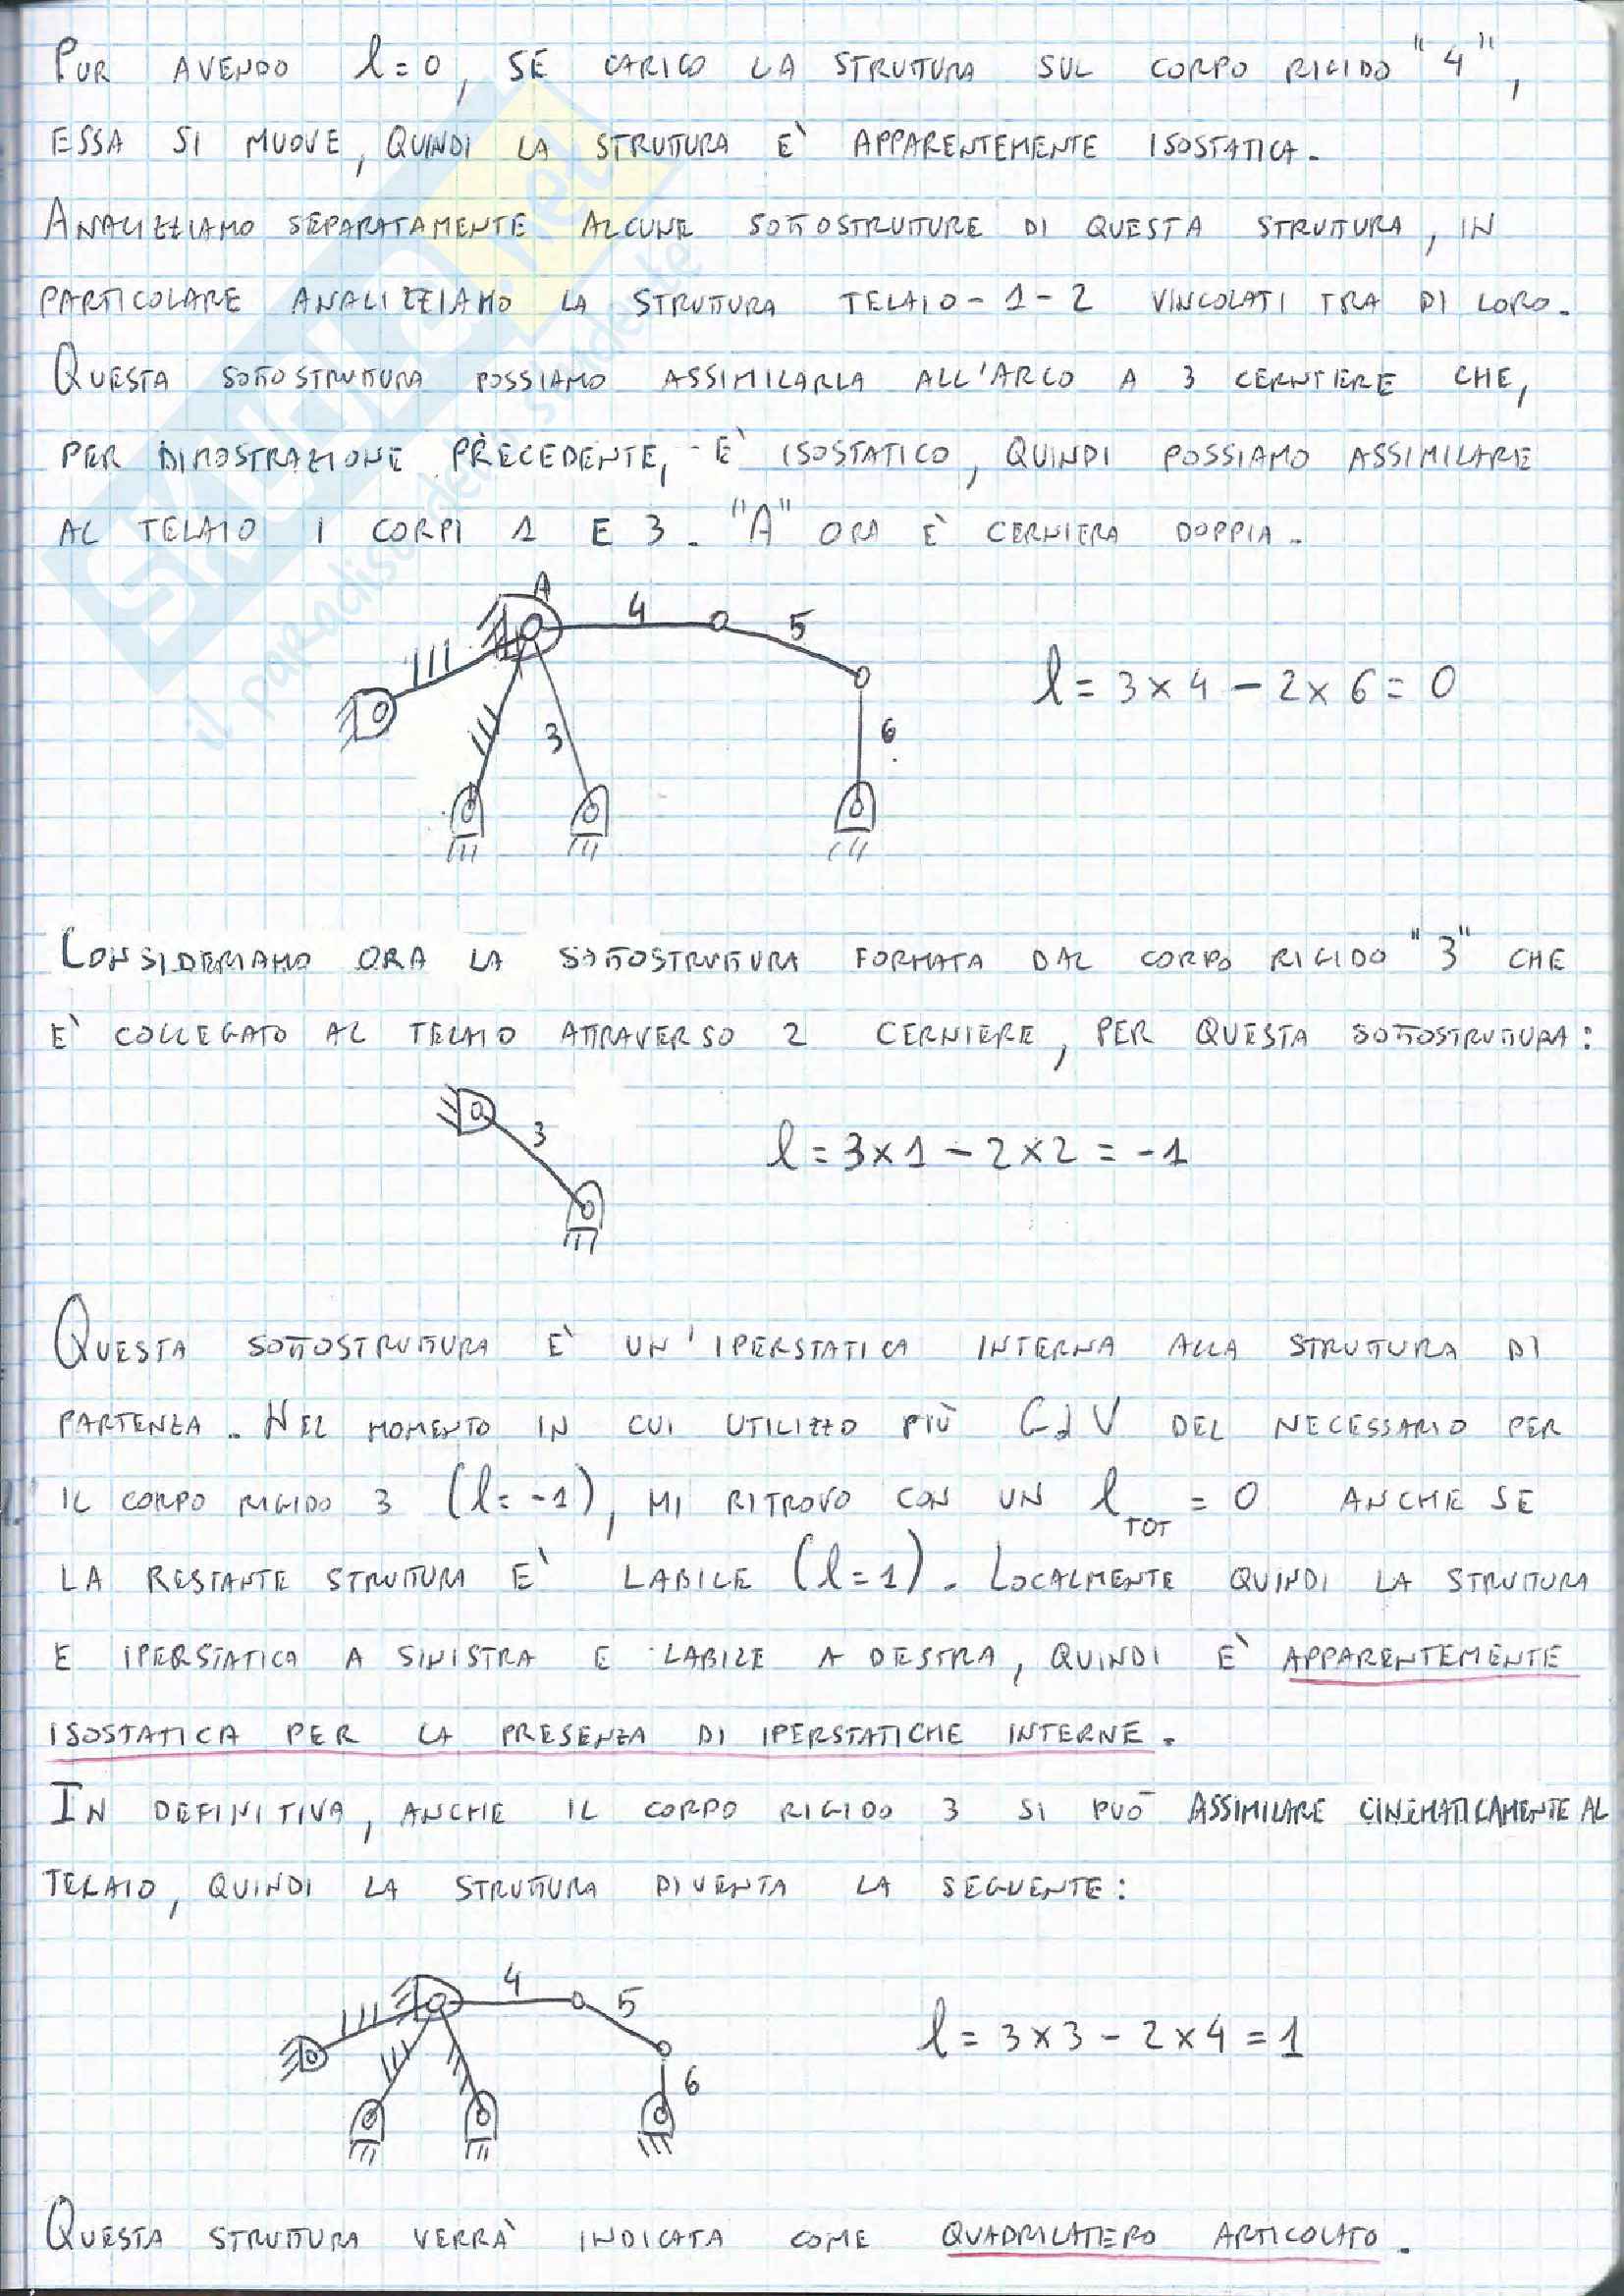 PUR AVENDO l=0, SE CARICO LA STRUTTURA SUL CORPO RIGIDO "4",
ESSA SI MUOVE, QUINDI LA STRUTTURA E' APPARENTEMENTE ISOSTATICA.
ANALIZZIAMO SEPARATAMENTE ALCUNE SOTTOSTRUTTURE DI QUESTA STRUTTURA, IN
PARTICOLARE ANALIZZIAMO LA STRUTTURA TELAIO-1-2 VINCOLATI TRA DI LORO.
QUESTA SOTTOSTRUTTURA POSSIAMO ASSIMILARLA ALL'ARCO A 3 CERNIERE CHE,
PER DIMOSTRAZIONE PRECEDENTE, E' ISOSTATICO, QUINDI POSSIAMO ASSIMILARE
AL TELAIO I CORPI 1 E 3. "A" ORA E' CERNIERA DOPPIA.
A
4
5
3
6
l = 3x4 - 2x6 = 0
CONSIDERIAMO ORA LA SOTTOSTRUTTURA FORMATA DAL CORPO RIGIDO "3" CHE
E' COLLEGATO AL TELAIO ATTRAVERSO 2 CERNIERE, PER QUESTA SOTTOSTRUTTURA:
3
l = 3x1 - 2x2 = -1
QUESTA SOTTOSTRUTTURA E' UN'IPERSTATICA INTERNA ALLA STRUTTURA DI
PARTENZA. NEL MOMENTO IN CUI UTILIZZO PIÙ GdV DEL NECESSARIO PER
IL CORPO RIGIDO 3 (l=-1), MI RITROVO CON UN l TOT = 0 ANCHE SE
LA RESTANTE STRUTTURA E' LABILE (l=1). LOCALMENTE QUINDI LA STRUTTURA
E IPERSTATICA A SINISTRA E LABILE A DESTRA, QUINDI E' APPARENTEMENTE
ISOSTATICA PER LA PRESENZA DI IPERSTATICHE INTERNE.
IN DEFINITIVA, ANCHE IL CORPO RIGIDO 3 SI PUÒ ASSIMILARE CINEMATICAMENTE AL
TELAIO, QUINDI LA STRUTTURA DIVENTA LA SEGUENTE:
4
5
6
l = 3x3 - 2x4 = 1
QUESTA STRUTTURA VERRÀ INDICATA COME QUADRILATERO ARTICOLATO.
SKUOLA.net
il paradiso dello studente